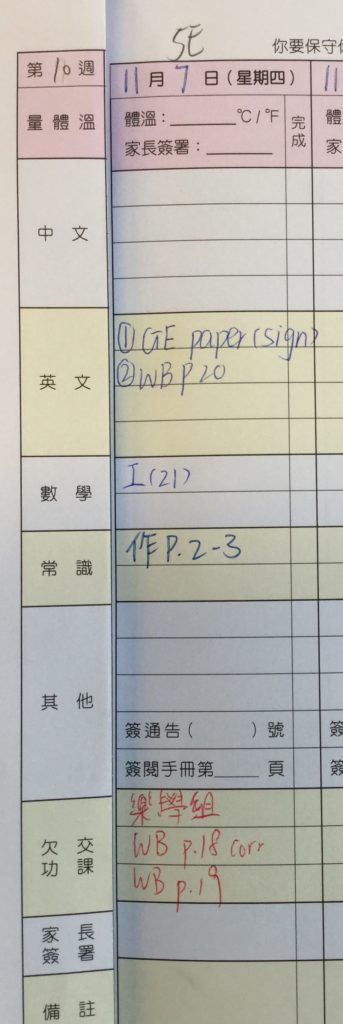 5E
你要保守
第 10 週
11 月 7 日 (星期四)
11
量體溫
體溫：______ °C / °F
家長簽署：______
完成
體
家
中文
英文
① GE paper (sign)
② WB P 20
數學
I (21)
常識
作 P. 2-3
其他
簽通告 (      ) 號
簽閱手冊第____ 頁
簽
簽
欠交功課
樂學組
WB p.18 corr
WB p.19
家長簽署
備註